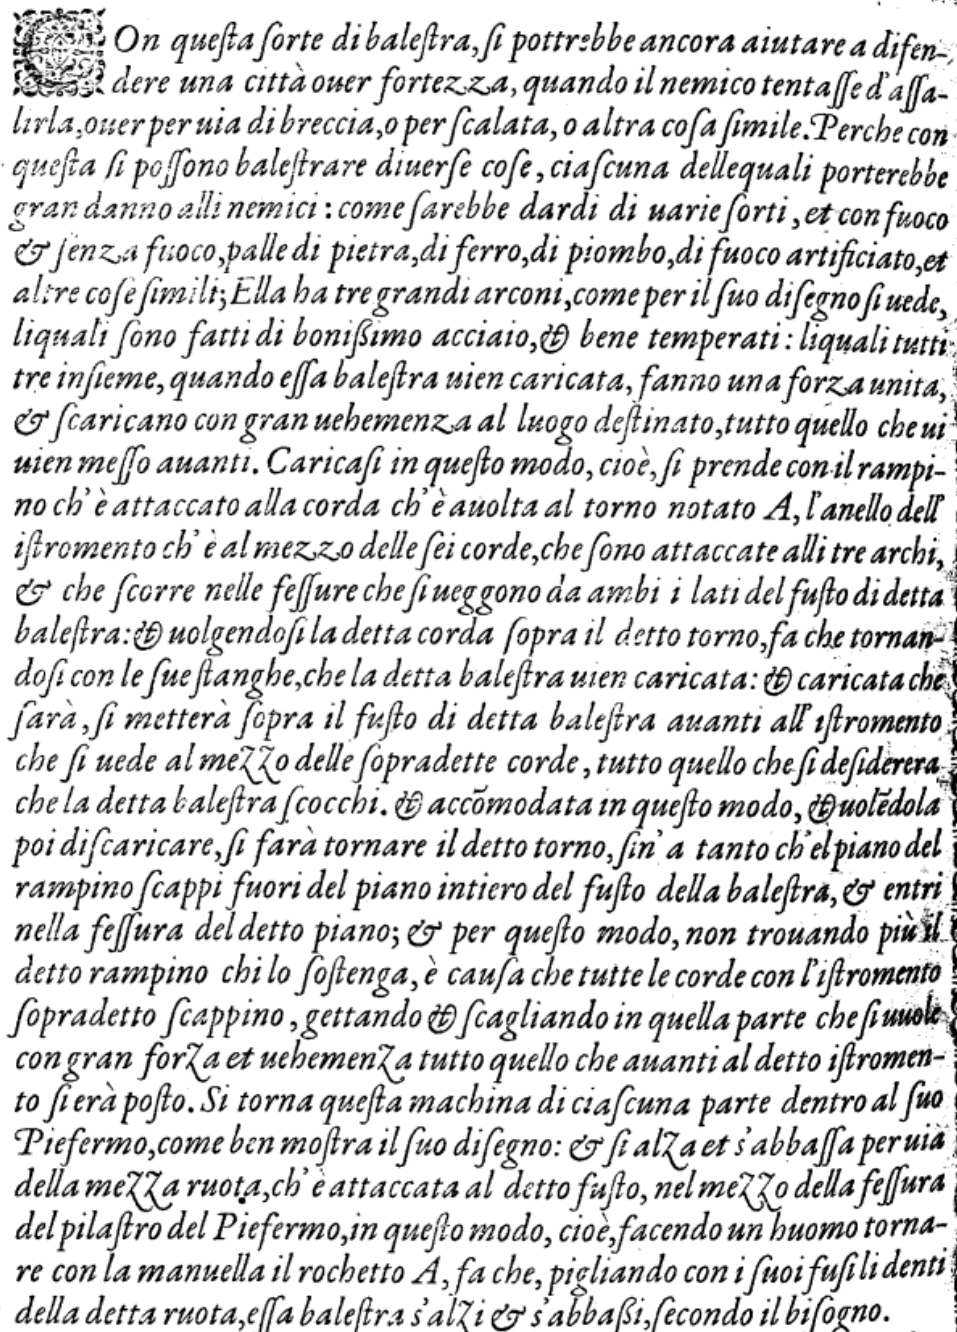 COn queſta ſorte di baleſtra, ſi pottrebbe ancora aiutare a difen-
dere una città ouer fortezza, quando il nemico tentaſſe d'aſſa-
lirla, ouer per uia di breccia, o per ſcalata, o altra coſa ſimile. Perche con
queſta ſi poſſono baleſtrare diuerſe coſe, ciaſcuna dellequali porterebbe
gran danno alli nemici: come ſarebbe dardi di uarie ſorti, et con fuoco
& ſenza fuoco, palle di pietra, di ferro, di piombo, di fuoco artificiato, et
altre coſe ſimili; Ella ha tre grandi arconi, come per il ſuo diſegno ſi uede,
liquali ſono fatti di bonißimo acciaio, & bene temperati: liquali tutti
tre inſieme, quando eſſa baleſtra uien caricata, fanno una forza unita,
& ſcaricano con gran uehemenza al luogo deſtinato, tutto quello che ui
uien meſſo auanti. Caricaſi in queſto modo, cioè, ſi prende con il rampi-
no ch'è attaccato alla corda ch'è auolta al torno notato A, l'anello dell'
iſtromento ch'è al mezzo delle ſei corde, che ſono attaccate alli tre archi,
& che ſcorre nelle feſſure che ſi ueggono da ambi i lati del fuſto di detta
baleſtra: & uolgendoſi la detta corda ſopra il detto torno, fa che tornan-
doſi con le ſue ſtanghe, che la detta baleſtra uien caricata: & caricata che
ſarà, ſi metterà ſopra il fuſto di detta baleſtra auanti all'iſtromento
che ſi uede al mezzo delle ſopradette corde, tutto quello che ſi deſiderera
che la detta baleſtra ſcocchi. & accōmodata in queſto modo, & uolēdola
poi diſcaricare, ſi farà tornare il detto torno, ſin'a tanto ch'el piano del
rampino ſcappi fuori del piano intiero del fuſto della baleſtra, & entri
nella feſſura del detto piano; & per queſto modo, non trouando più il
detto rampino chi lo ſoſtenga, è cauſa che tutte le corde con l'iſtromento
ſopradetto ſcappino, gettando & ſcagliando in quella parte che ſi uuole
con gran forza et uehemenza tutto quello che auanti al detto iſtromen-
to ſi erà poſto. Si torna queſta machina di ciaſcuna parte dentro al ſuo
Piefermo, come ben moſtra il ſuo diſegno: & ſi alza et s'abbaſſa per uia
della mezza ruota, ch'è attaccata al detto fuſto, nel mezzo della feſſura
del pilaſtro del Piefermo, in queſto modo, cioè, facendo un huomo torna-
re con la manuella il rochetto A, fa che, pigliando con i ſuoi fuſi li denti
della detta ruota, eſſa baleſtra s'alzi & s'abbaßi, ſecondo il biſogno.